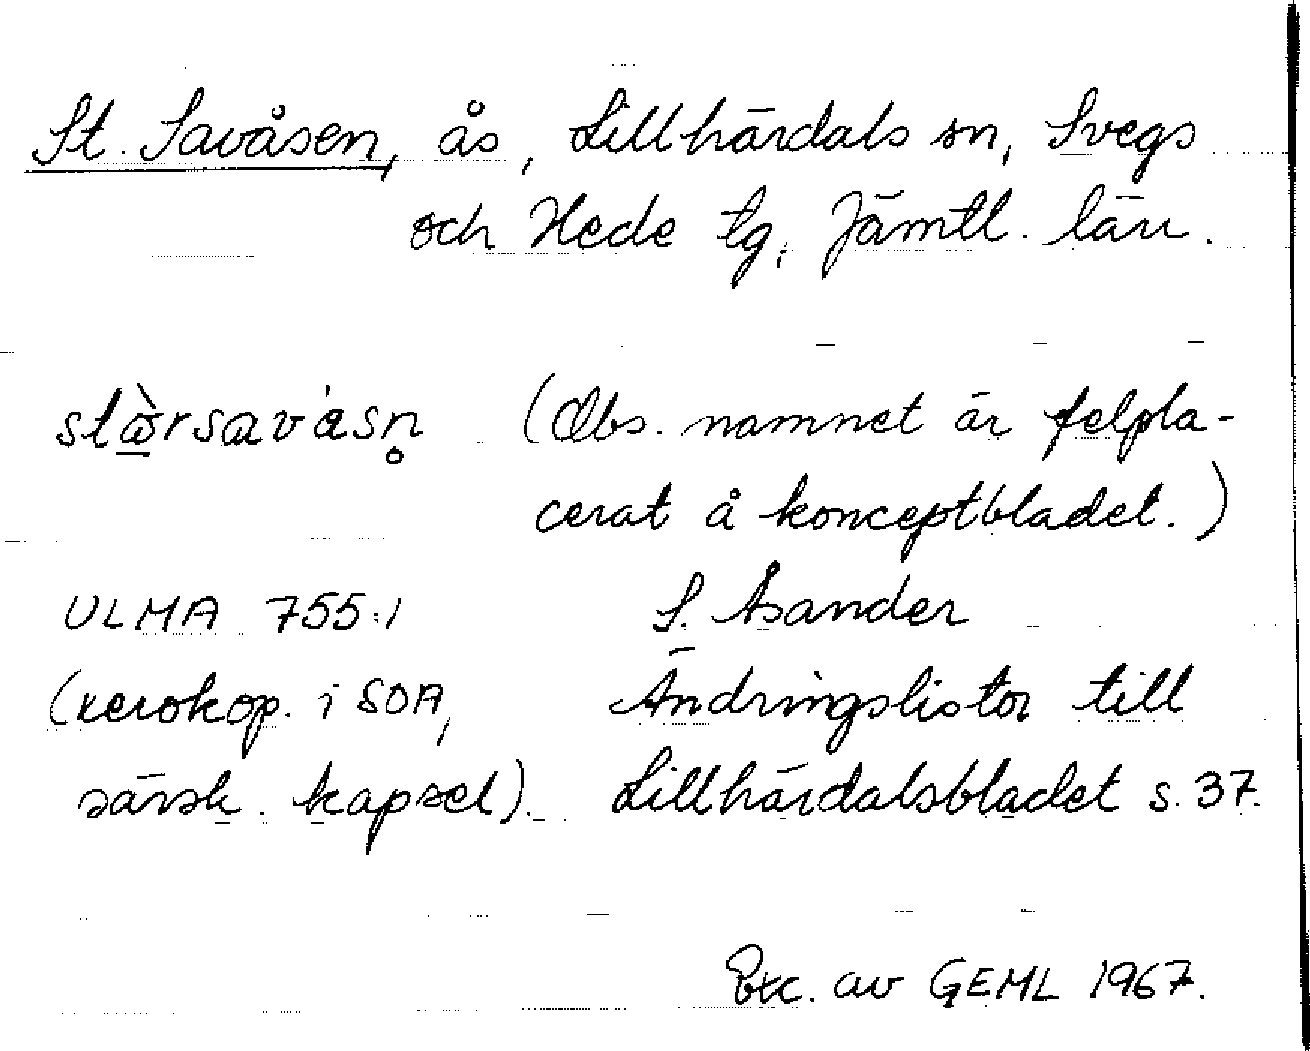 St. Savåsen, ås, Lillhärdals sn, Svegs
och Hede tg, Jämtl. län.
stø̀rsavásn̥ (Obs. namnet är felpla-
cerat å konceptbladet.)
ULMA 755:1 S. Åsander
(xerokop. i SOA, Ändringslistor till
särsk. kapsel). Lillhärdalsbladet s. 37.
Exc. av GEML 1967.